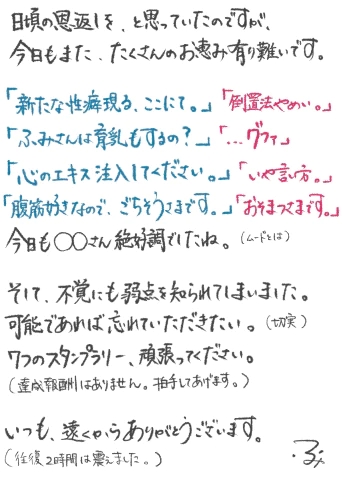 日頃の恩返しを、と思っていたのですが、
今日もまた、たくさんのお恵み有り難いです。
「新たな性癖現る、ここにて。」「倒置法やめい。」
「ふみさんは育乳もするの？」「…グファ」
「心のエキス注入してください。」「いや言い方。」
「腹筋好きなので、ごちそうさまです。」「おそまつさまです。」
今日も〇〇さん絶好調でしたね。(ムードとは)
そして、不覚にも弱点を知られてしまいました。
可能であれば忘れていただきたい。(切実)
7つのスタンプラリー、頑張ってください。
(達成報酬はありません。拍手してあげます。)
いつも、遠くからありがとうございます。
(往復2時間は震えました。)
ふみ